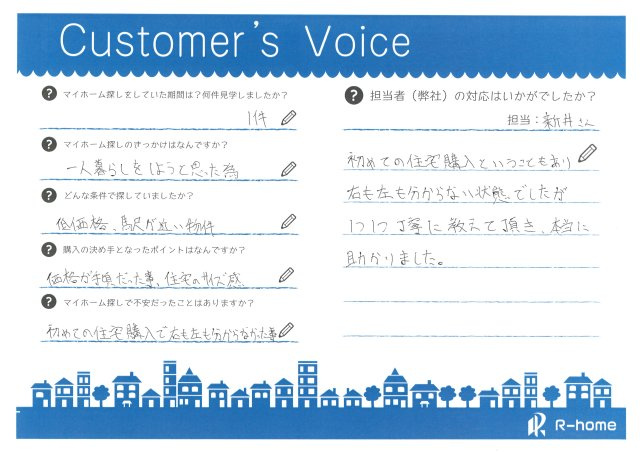 Customer's Voice
? マイホーム探しをしていた期間は？何件見学しましたか？
1件
? マイホーム探しのきっかけはなんですか？
一人暮らしをしようと思った為
? どんな条件で探していましたか？
低価格、駅が近い物件
? 購入の決め手となったポイントはなんですか？
価格が手頃だった事、住宅のサイズ感
? マイホーム探しで不安だったことはありますか？
初めての住宅購入で右も左も分からなかった事
? 担当者（弊社）の対応はいかがでしたか？
担当：新井さん
初めての住宅購入ということもあり
右も左も分からない状態でしたが
1つ1つ丁寧に教えて頂き、本当に
助かりました。
R-home